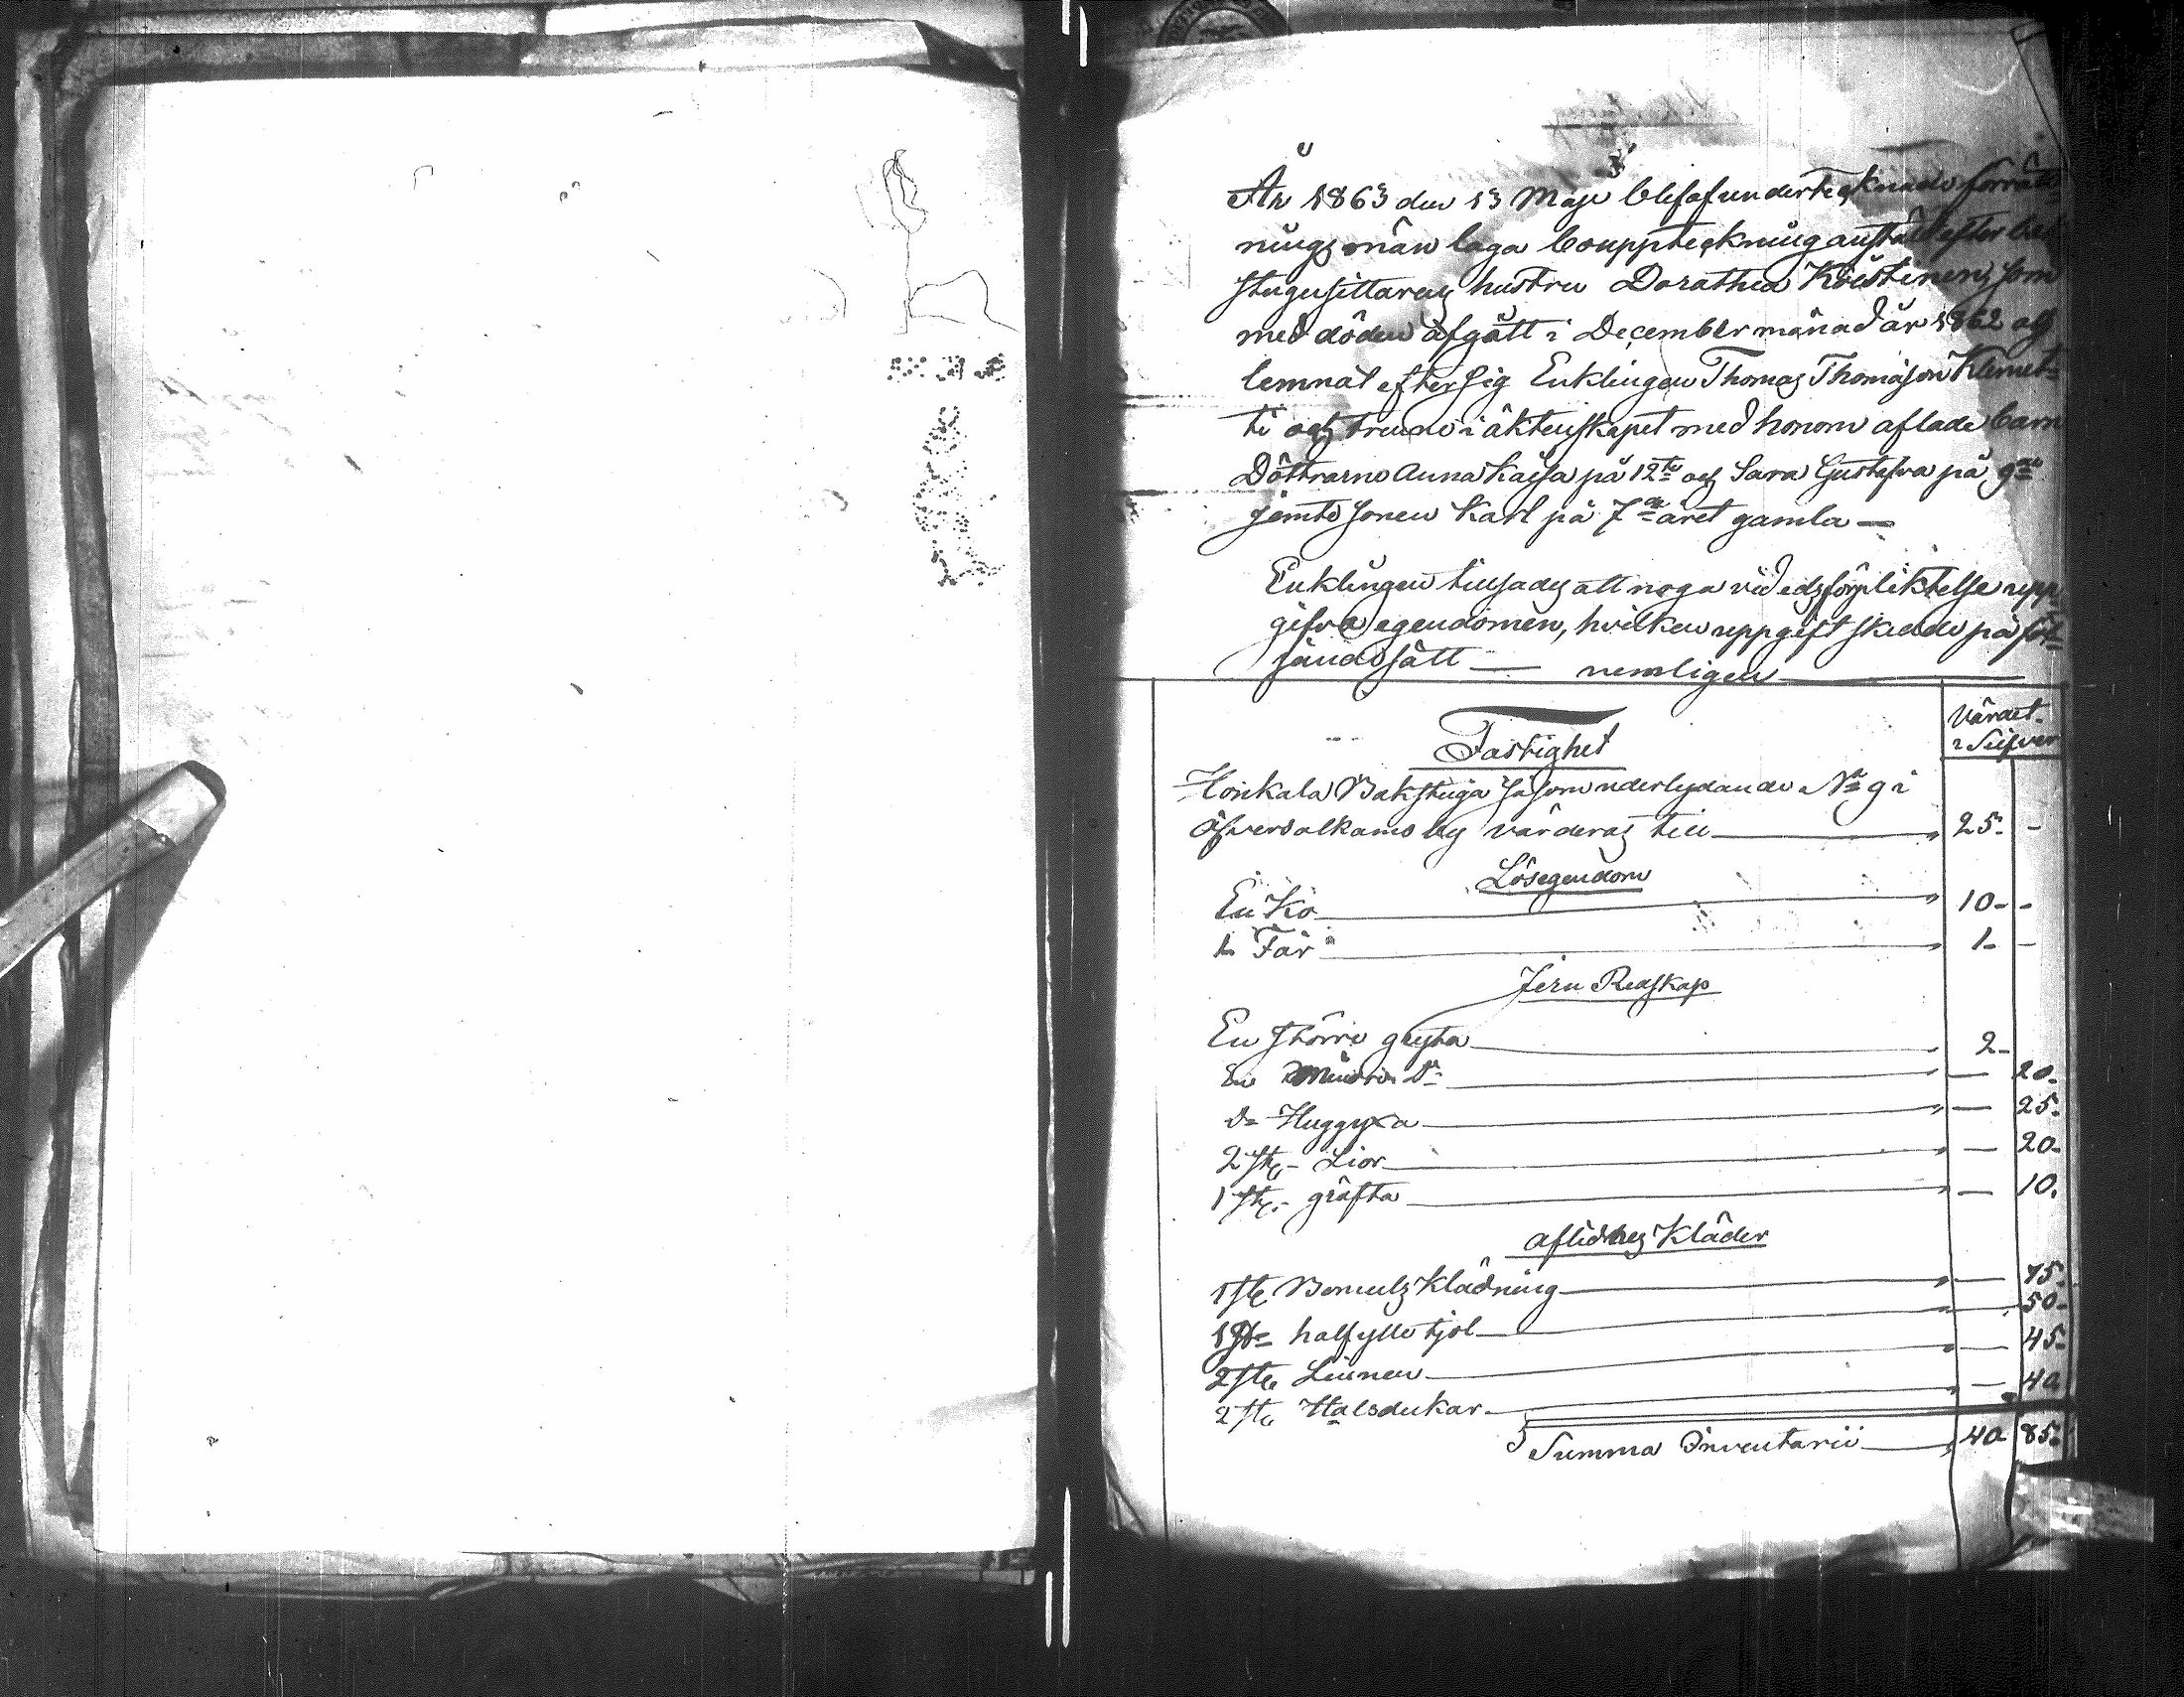 År 1863 den 13 Maji blef af undertecknade förrätt-
nings män laga bouppteckning anstäld efter bak
stugusittarens hustru Dorathea Kristinen, som
med döden afgått i December månad år 1862 och
lemnat efter sig Enklingen Thomas Thomasson Klemet-
ti och trenne i äktenskapet med honom aflade barn
Döttrarne Anna Kaisa på 12te och Sara Gustafva på 9de
jemte sonen Karl på 7de året gamla —
Enklingen tillsades att noga vid edsförpliktelse upp
gifva egendomen, hvilken uppgift skedde på föl-
jande sätt — nemligen
Värdet
i Silfver
Fastighet
Honkala Bakstuga såsom underlydande No 9 i
Öfverdalkamo by värderas till 25. -
Lösegendom
En Ko 10 - -
1 Får 1 - -
Jern Redskap
En större gryta 2 -
En mindre Do — 20.
Do Huggyxa — 25.
2 stn Lior — 20.
1 st. gräfta — 10.
Aflidnes Kläder
1 st Bomuls Klädning — 75.
1 st halfylle kjol — 50.
2 st Linnen — 45.
2 st Halsdukar — 40
Summa Inventarii 40 85.